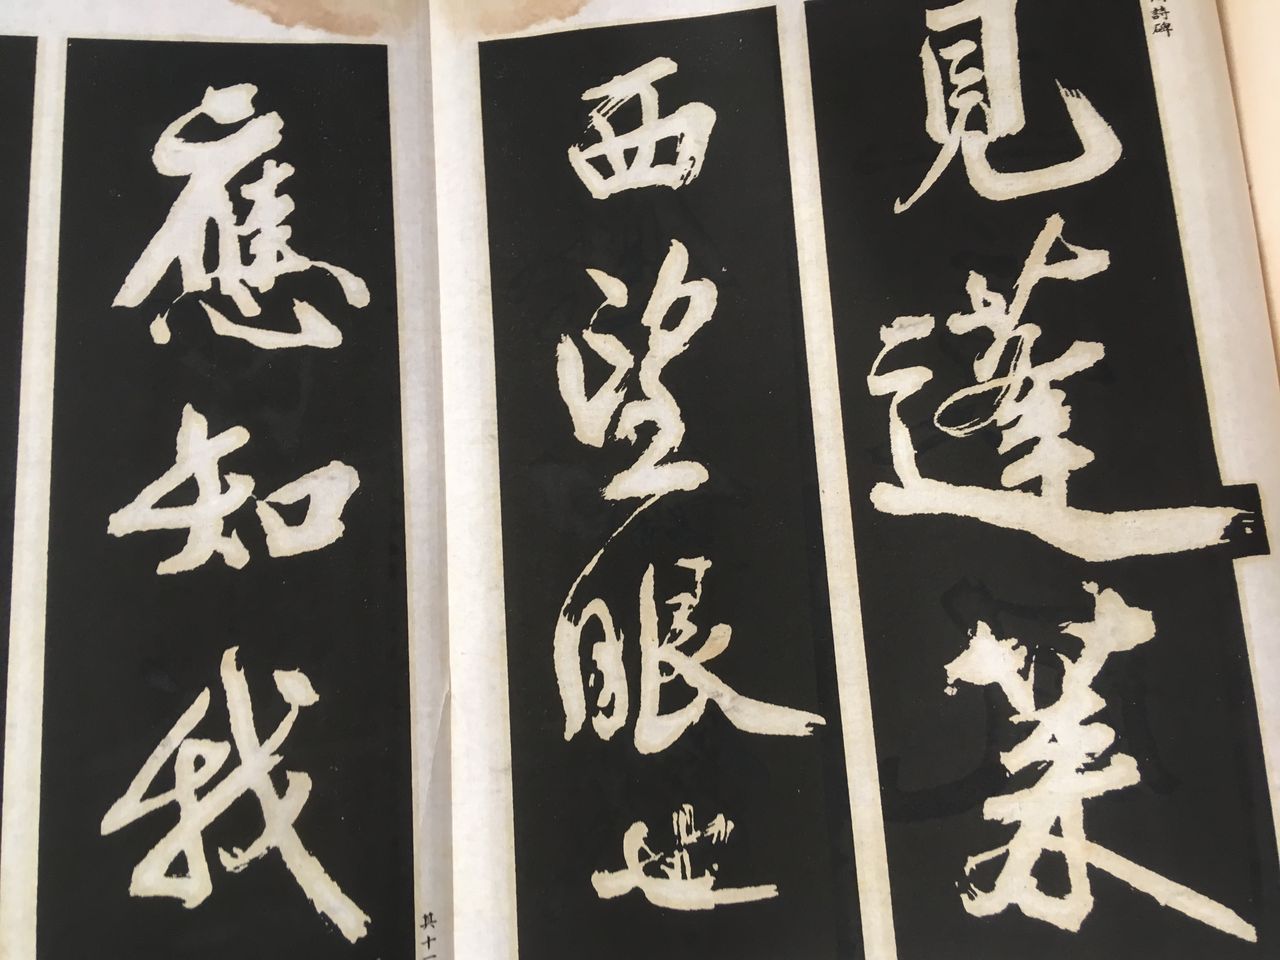 見蓬萊
西望眼也
應知我
詩碑
其十一